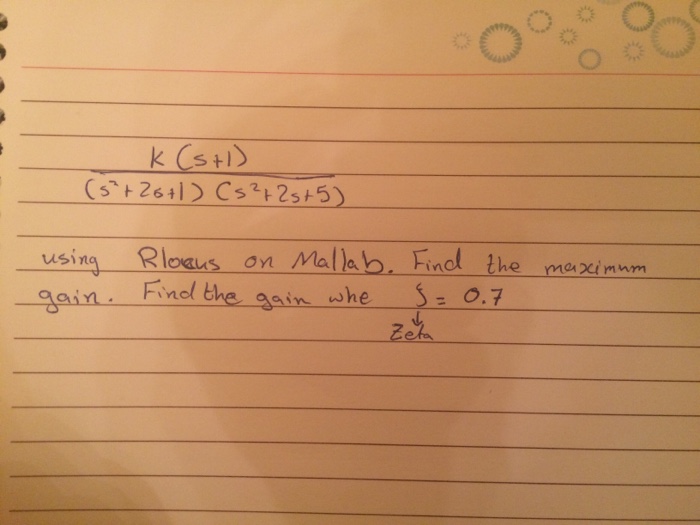 K (s+1)
(s²+2s+1) (s²+2s+5)
using Rlocus on Matlab. Find the maximum
gain. Find the gain whe ζ = 0.7
↓
Zeta